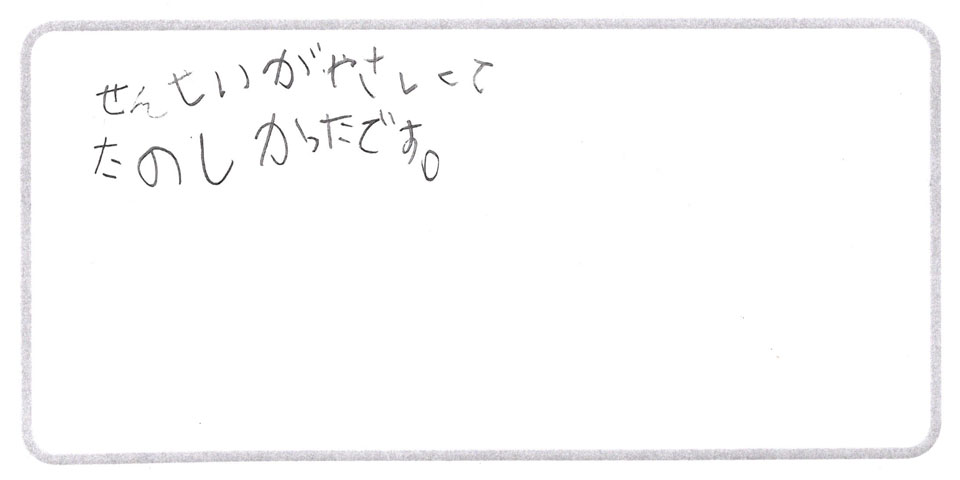 せんせいがやさしくて
たのしかったです。